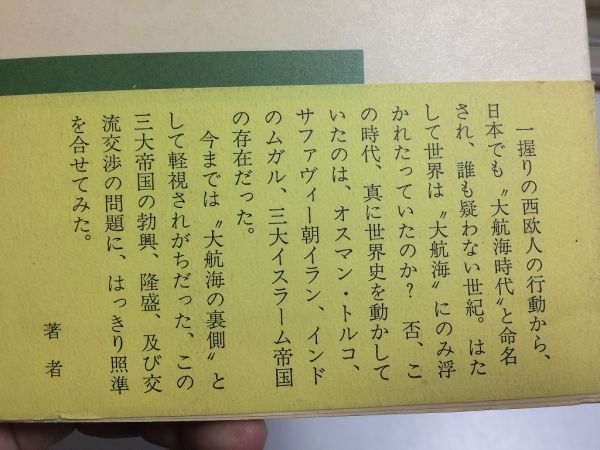 一握りの西欧人の行動から、
日本でも〝大航海時代〟と命名
され、誰も疑わない世紀。はた
して世界は〝大航海〟にのみ浮
かれたっていたのか？　否、こ
の時代、真に世界史を動かして
いたのは、オスマン・トルコ、
サファヴィー朝イラン、インド
のムガル、三大イスラーム帝国
の存在だった。
今までは〝大航海の裏側〟と
して軽視されがちだった、この
三大帝国の勃興、隆盛、及び交
流交渉の問題に、はっきり照準
を合せてみた。
著者